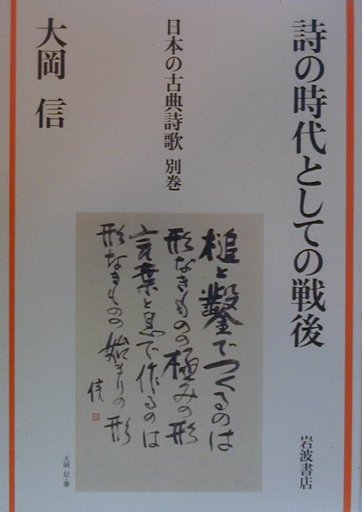 詩の時代としての戦後
日本の古典詩歌 別巻
大岡 信
槌と鑿でつくるのは
形なきものの極みの形
言葉と息で作るのは
形なきものの始まりの形
信
大岡 信・筆
岩波書店